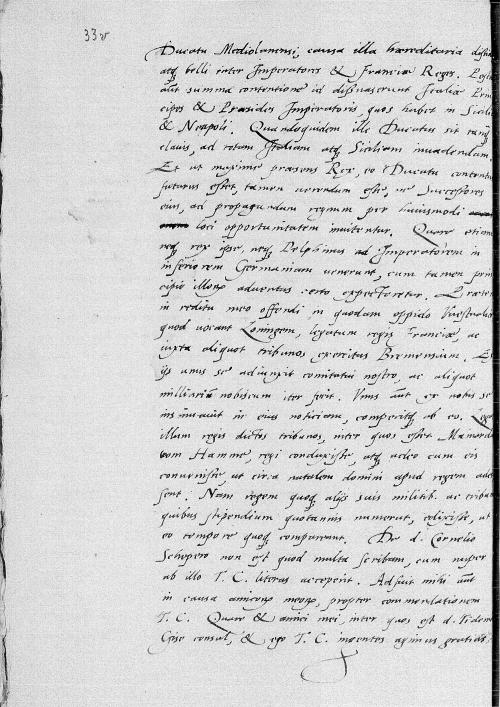 33v
Ducatu Mediolanensi, causa illa hæreditaria
atq belli inter Imperatores & Franciæ Reges.
aūt summa contentione id Italiæ
cipes & Præsides Imperatoris, quos habet in
& Neapoli. Quandoquidem ille Ducatus sit
clauis, ad totam Italiam atq Siciliam inuadendam
Et ut maxime præsens Rex, eo Ducatu
futurus esset, tamen uerendum esse, ne Successores
eius, ad propagandum regnum per huiusmodi
loci opportunitatem inuitentur. Quare etiam
neq rex ipse, neq Delphinus ad Imperatorem in
inferiorem Germaniam uenerunt, cum tamen
cipio illorū aduentus certo expectaretur.
in reditu meo offendi in quodam oppido
quod uocant Loningem, legatum regis Franciæ, ac
iuxta aliquot tribunos exercitus Bremensium.
ijs unus se adiunxit comitatui nostro, ac aliquot
milliaria nobiscum iter fecit. Vnus aūt ex
insinuauit in eius noticiam, comperitq ab eo
illum regis dictos tribunos, inter quos esset
Hamme, regi conduxisse, atq adeo cum eis
conuenisse ut circa natalem domini apud regem
sent. Nam regem quoq alijs suis militib. ac
quibus stipendium quotannis numerat, edixisse, ut
eo tempore quoq compareant. De d. Cornelio
Scheppero non est quod multa scribam, cum nuper
ab illo T. C. literas acceperit. Adfuit mihi aūt
in causa amicorū meorū, propter commendationem
T. C. Quare & amici mei, inter quos est d.
consul, & ego T. C. ingentes agimus gratias.